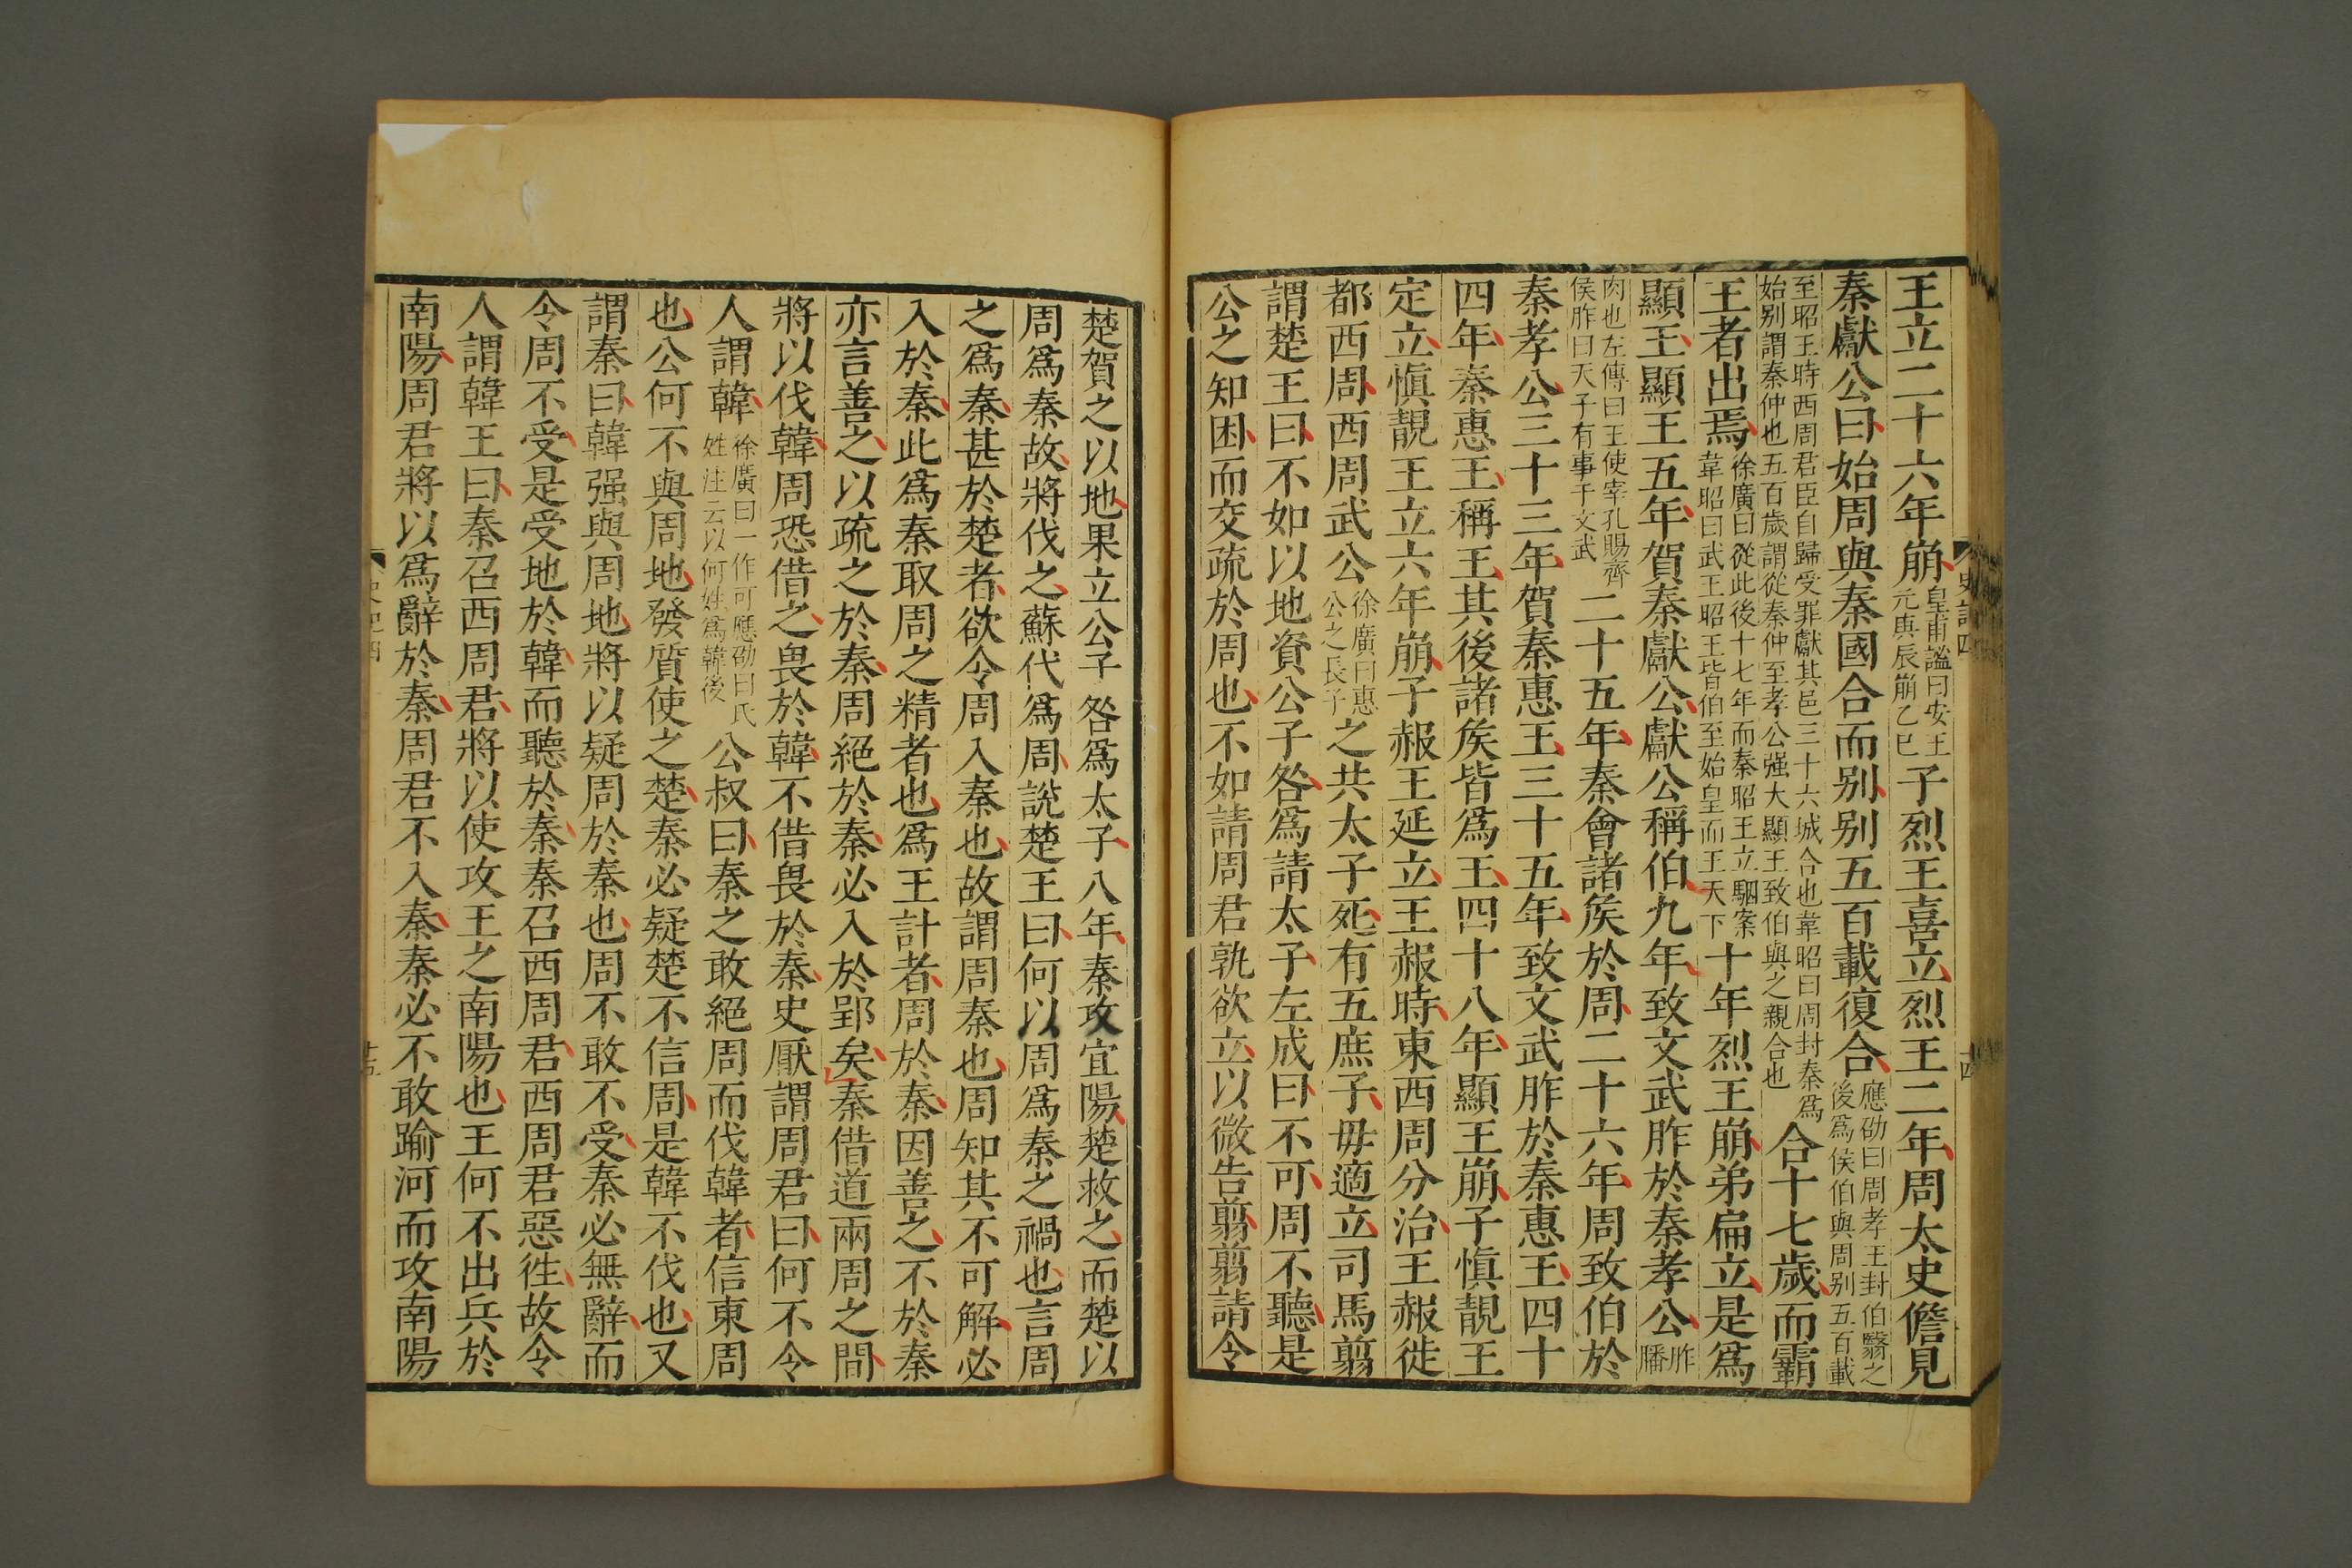 王立二十六年崩皇甫謐曰安王元庚辰崩乙巳子烈王喜立烈王二年周太史儋見
秦獻公曰始周與秦國合而别别五百載復合應劭曰周孝王封伯翳之後爲侯伯與周别五百載
至昭王時西周君臣自歸受罪獻其邑三十六城合也韋昭曰周封秦爲始别謂秦仲也五百歲謂從秦仲至孝公强大顯王致伯與之親合也合十七歲而霸
王者出焉徐廣曰從此後十七年而秦昭王立駰案韋昭曰武王昭王皆伯至始皇而王天下十年烈王崩弟扁立是爲
顯王顯王五年賀秦獻公獻公稱伯九年致文武胙於秦孝公胙膰
肉也左傳曰王使宰孔賜齊侯胙曰天子有事于文武二十五年秦會諸矦於周二十六年周致伯於
秦孝公三十三年賀秦惠王三十五年致文武胙於秦惠王四十
四年秦惠王稱王其後諸矦皆爲王四十八年顯王崩子愼靚王
定立愼靚王立六年崩子赧王延立王赧時東西周分治王赧徙
都西周西周武公徐廣曰惠公之長子之共太子死有五庶子毋適立司馬翦
謂楚王曰不如以地資公子咎爲請太子左成曰不可周不聽是
公之知困而交疏於周也不如請周君孰欲立以微告翦翦請令
史記四
十四
楚賀之以地果立公子咎爲太子八年秦攻宜陽楚救之而楚以
周爲秦故將伐之蘇代爲周說楚王曰何以周爲秦之禍也言周
之爲秦甚於楚者欲令周入秦也故謂周秦也周知其不可解必
入於秦此爲秦取周之精者也爲王計者周於秦因善之不於秦
亦言善之以疏之於秦周絕於秦必入於郢矣秦借道兩周之間
將以伐韓周恐借之畏於韓不借畏於秦史厭謂周君曰何不令
人謂韓徐廣曰一作可應劭曰氏姓注云以何姓爲韓後公叔曰秦之敢絕周而伐韓者信東周
也公何不與周地發質使之楚秦必疑楚不信周是韓不伐也又
謂秦曰韓强與周地將以疑周於秦也周不敢不受秦必無辭而
令周不受是受地於韓而聽於秦秦召西周君西周君惡徃故令
人謂韓王曰秦召西周君將以使攻王之南陽也王何不出兵於
南陽周君將以爲辭於秦周君不入秦秦必不敢踰河而攻南陽